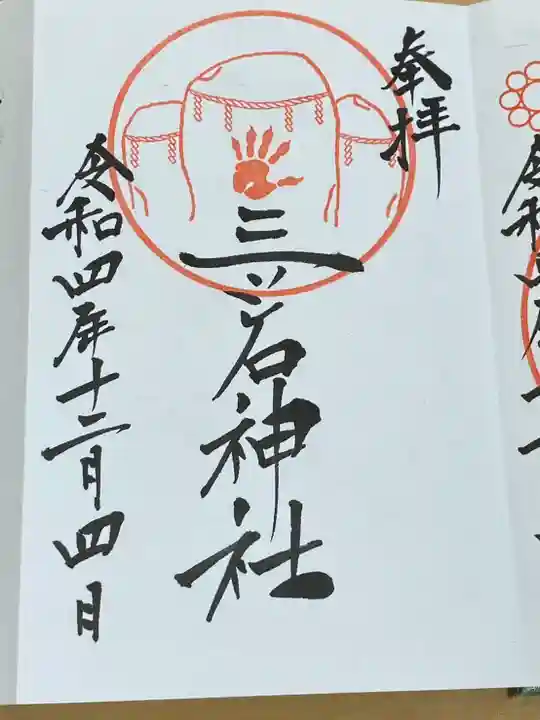 奉拝
三ツ石神社
令和四年十二月四日